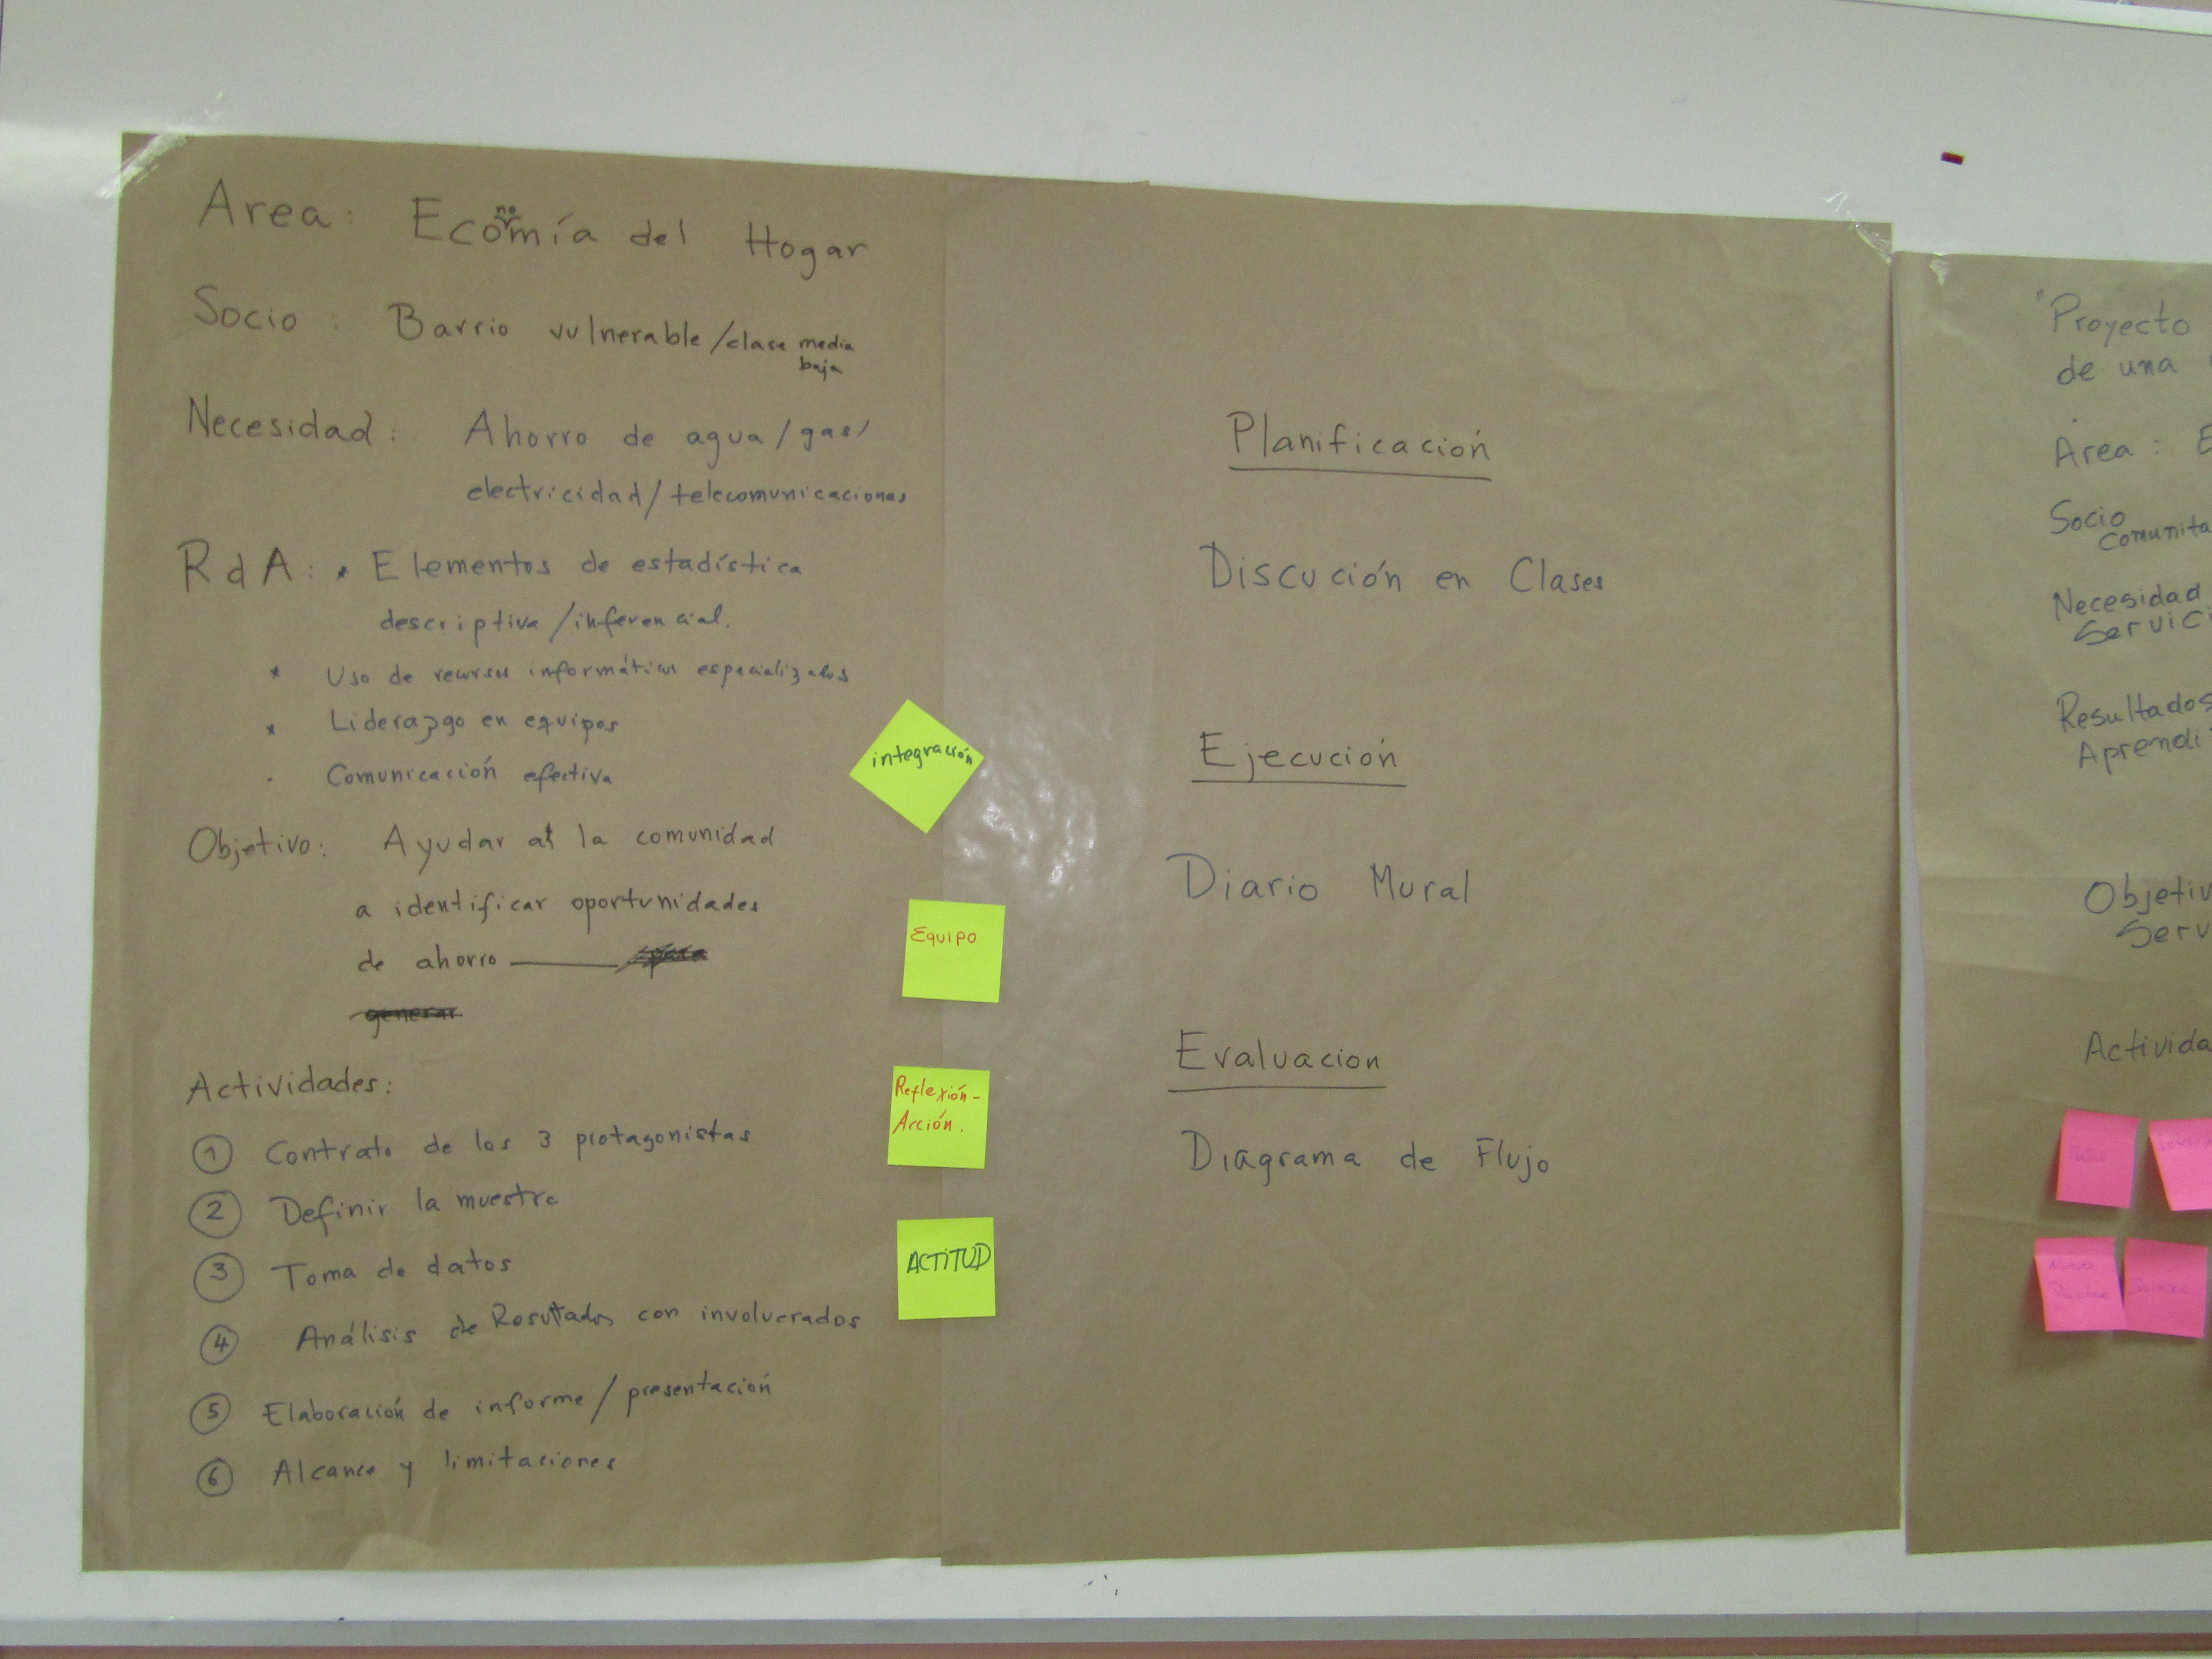 Area: Economía del Hogar
Socio: Barrio vulnerable/clase media
baja
Necesidad: Ahorro de agua/gas/
electricidad/telecomunicaciones
RdA: * Elementos de estadística
descriptiva/inferencial.
* Uso de recursos informáticos especializados
* Liderazgo en equipos
· Comunicación efectiva
Objetivo: Ayudar a la comunidad
a identificar oportunidades
de ahorro
generar
Actividades:
1 Contrato de los 3 protagonistas
2 Definir la muestra
3 Toma de datos
4 Análisis de Resultados con involucrados
5 Elaboración de informe/presentación
6 Alcance y limitaciones
integración
Equipo
Reflexión-
Acción.
ACTITUD
Planificación
Discución en Clases
Ejecución
Diario Mural
Evaluacion
Diagrama de Flujo
"Proyecto
de una
Area: E
Socio
Comunita
Necesidad
Servici
Resultados
Aprendi
Objetiv
Serv
Activida